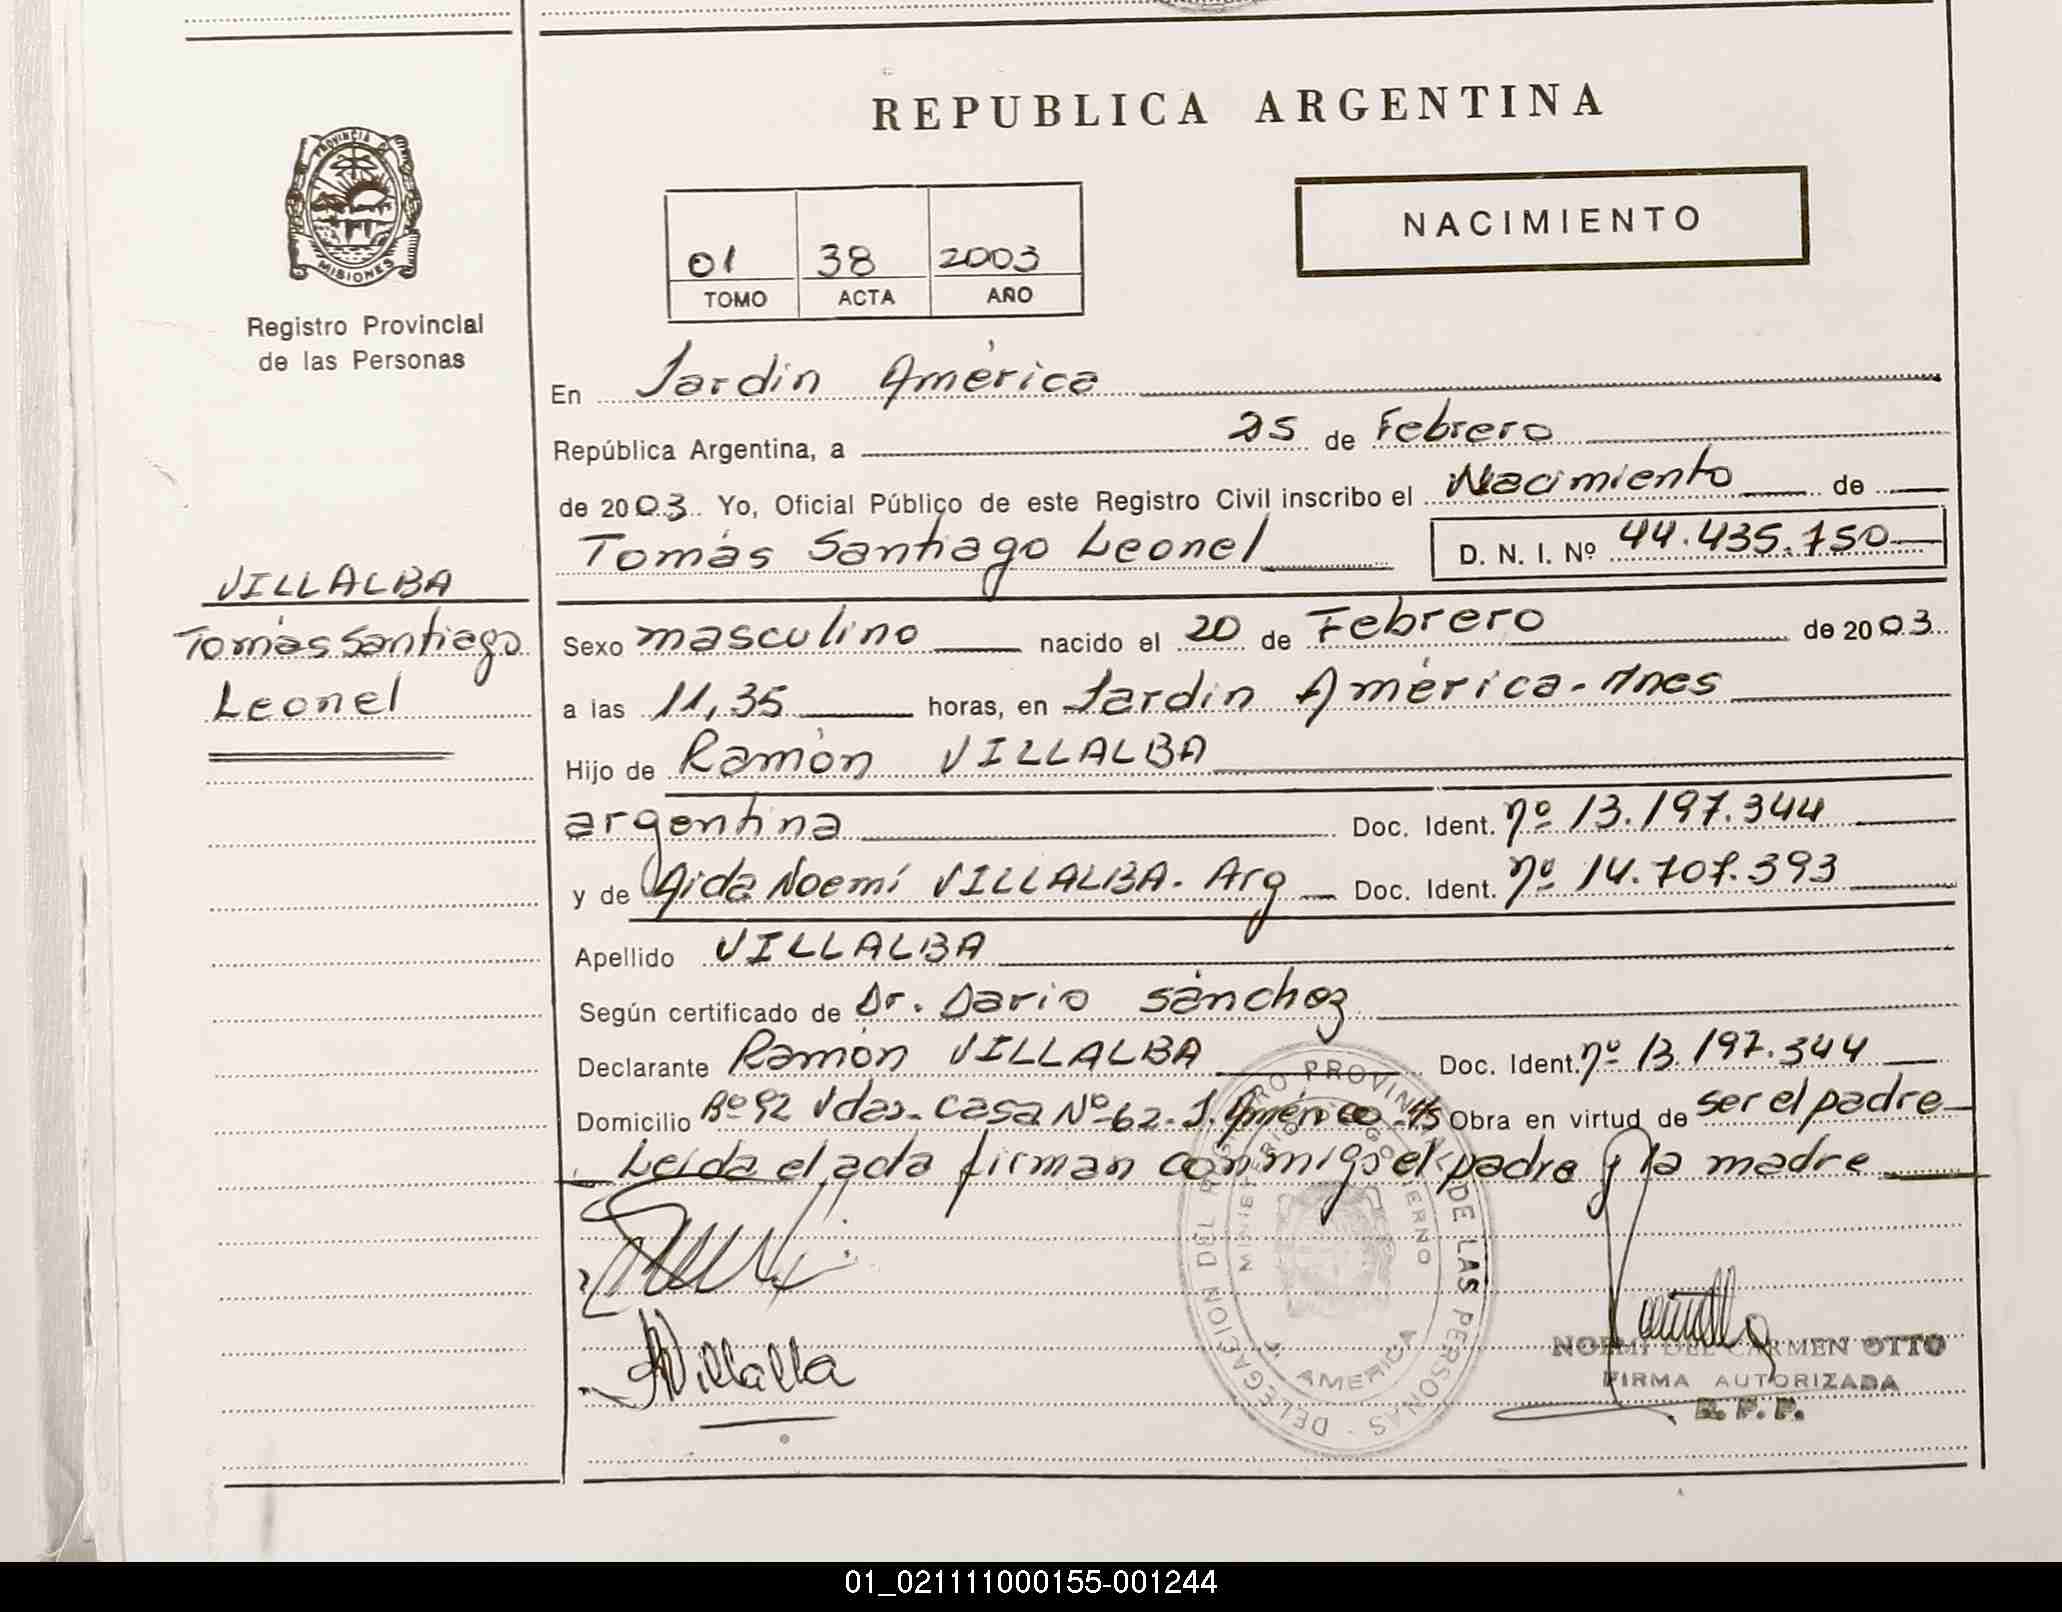 REPUBLICA ARGENTINA
NACIMIENTO
01 38 2003
TOMO ACTA AÑO
PROVINCIA DE
MISIONES
Registro Provincial
de las Personas
En Jardin América
República Argentina, a 25 de Febrero
de 2003. Yo, Oficial Público de este Registro Civil inscribo el Nacimiento de
Tomás Santiago Leonel D. N. I. Nº 44.435.750
VILLALBA
Tomás Santiago
Leonel
Sexo masculino nacido el 20 de Febrero de 2003
a las 11,35 horas, en Jardin América - Mnes
Hijo de Ramón VILLALBA
argentina Doc. Ident. nº 13.197.344
y de Aida Noemí VILLALBA. Arg Doc. Ident. nº 14.707.393
Apellido VILLALBA
Según certificado de Dr. Dario Sánchez
Declarante Ramón VILLALBA Doc. Ident. nº 13.197.344
Domicilio Bº 92 Vdas. Casa Nº 62 - J. América Obra en virtud de ser el padre
Leida el acta firman conmigo el padre y la madre
DELEGACION DEL REGISTRO PROVINCIAL DE LAS PERSONAS
MINISTERIO DE GOBIERNO
J. AMERICA
NOEMI DEL CARMEN OTTO
FIRMA AUTORIZADA
R. P. P.
01_021111000155-001244